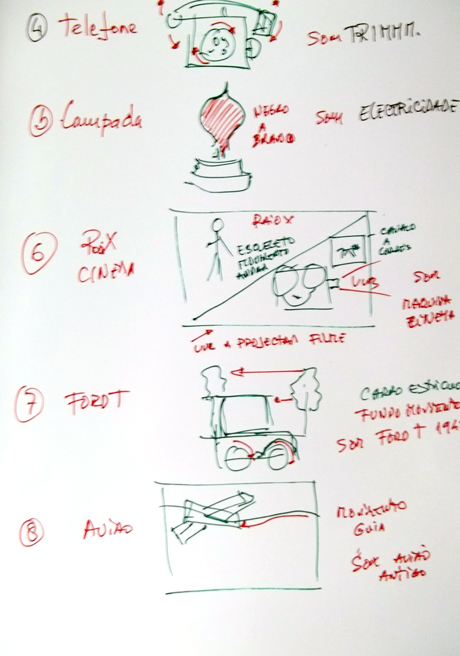 4 Telefone
Som TRIMMM.
5 Lampada
NEGRO
A
BRANCO
Som ELECTRICIDADE
6
CINEMA
RAIOX
ESQUELETO
MOVIMENTO
ANDAR
CAVALO
A
CORRER
LUZ
SOM
MAQUINA
CINEMA
LUZ A PROJECTAR FILME
7 FORD T
CARRO
FUNDO MOVIMENTO
SOM FORD T
8 AVIAO
MOVIMENTO
GUIA
SOM AVIAO
ANTIGO